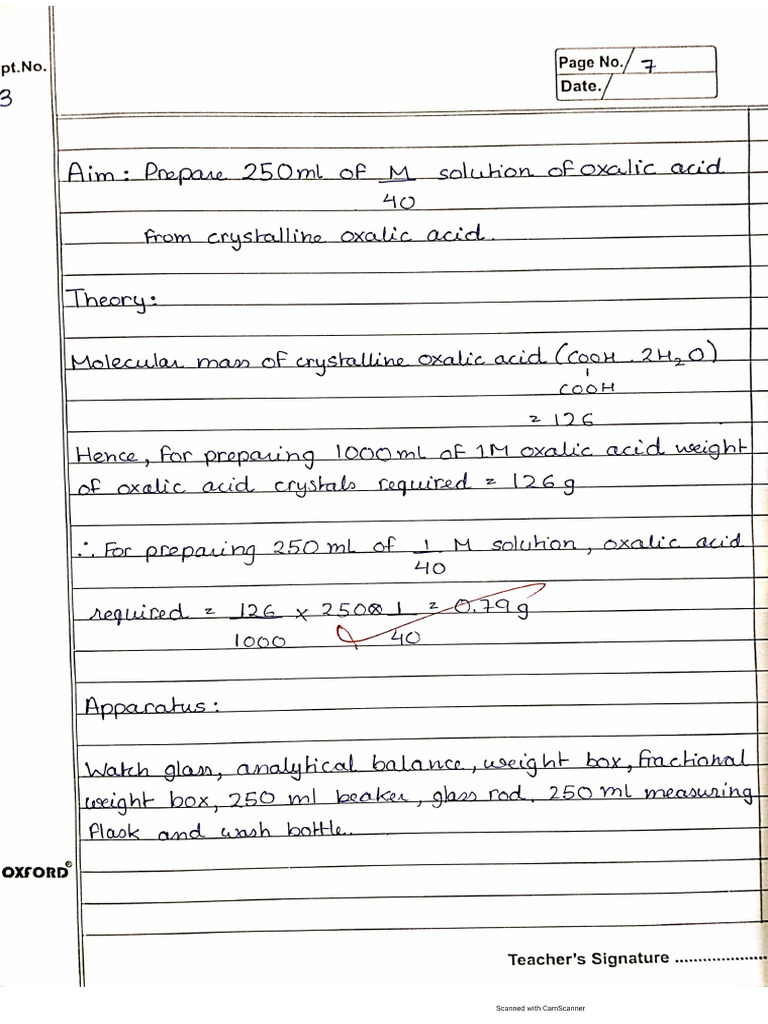 pt.No.
3
Page No. 7
Date.
Aim: Prepare 250ml of M solution of oxalic acid
40
from crystalline oxalic acid.
Theory:
Molecular mass of crystalline oxalic acid (COOH . 2H₂O)
COOH
= 126
Hence, for preparing 1000ml of 1M oxalic acid weight
of oxalic acid crystals required = 126g
∴ For preparing 250 ml of 1 M solution, oxalic acid
40
required = 126 × 250 × 1 = 0.79g
1000 40
Apparatus:
Watch glass, analytical balance, weight box, fractional
weight box, 250 ml beaker, glass rod. 250 ml measuring
flask and wash bottle.
OXFORD®
Teacher's Signature ...................
Scanned with CamScanner